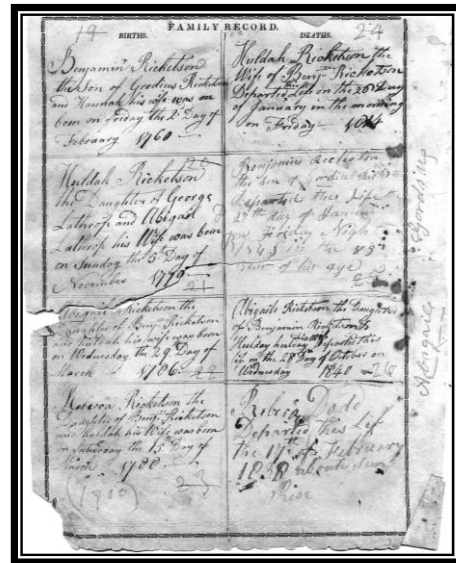 19
FAMILY RECORD.
24
BIRTHS.
Benjamin Ricketson
the Son of Gordius Ricketson
and Hannah his wife was on
born on Friday the 2 Day of
February 1760
Huldah Ricketson
the Daughter of George
Lathrop and Abigail
Lathrop his Wife was born
on Sunday the 5 Day of
November
21
Abigail Ricketson the
Daughter of Benj Ricketson
and huldah his wife was born
on Wednesday the 29 Day of
March 1786
Rebecca Ricketson the
Daughter of Benj Ricketson
and huldah his Wife was born
on Saturday the 15 Day of
March 1788
23
DEATHS.
Huldah Ricketson the
Wife of Benj Ricketson
Departed Life on the 28 Day
of January in the morning
on Friday
Benjamin Ricketson
the son of Gordius
Departed this Life the
27th day of January
on Friday Night
1843 in the 83
year of his age
Abigail Ricketson the Daughter
of Benjamin Ricketson &
Huldah Departed this
life on the 28 Day of October on
Wednesday 1840 26
Dode
Departed this Lif
the 17th of February
1838 about Sun
Rise
Abigail